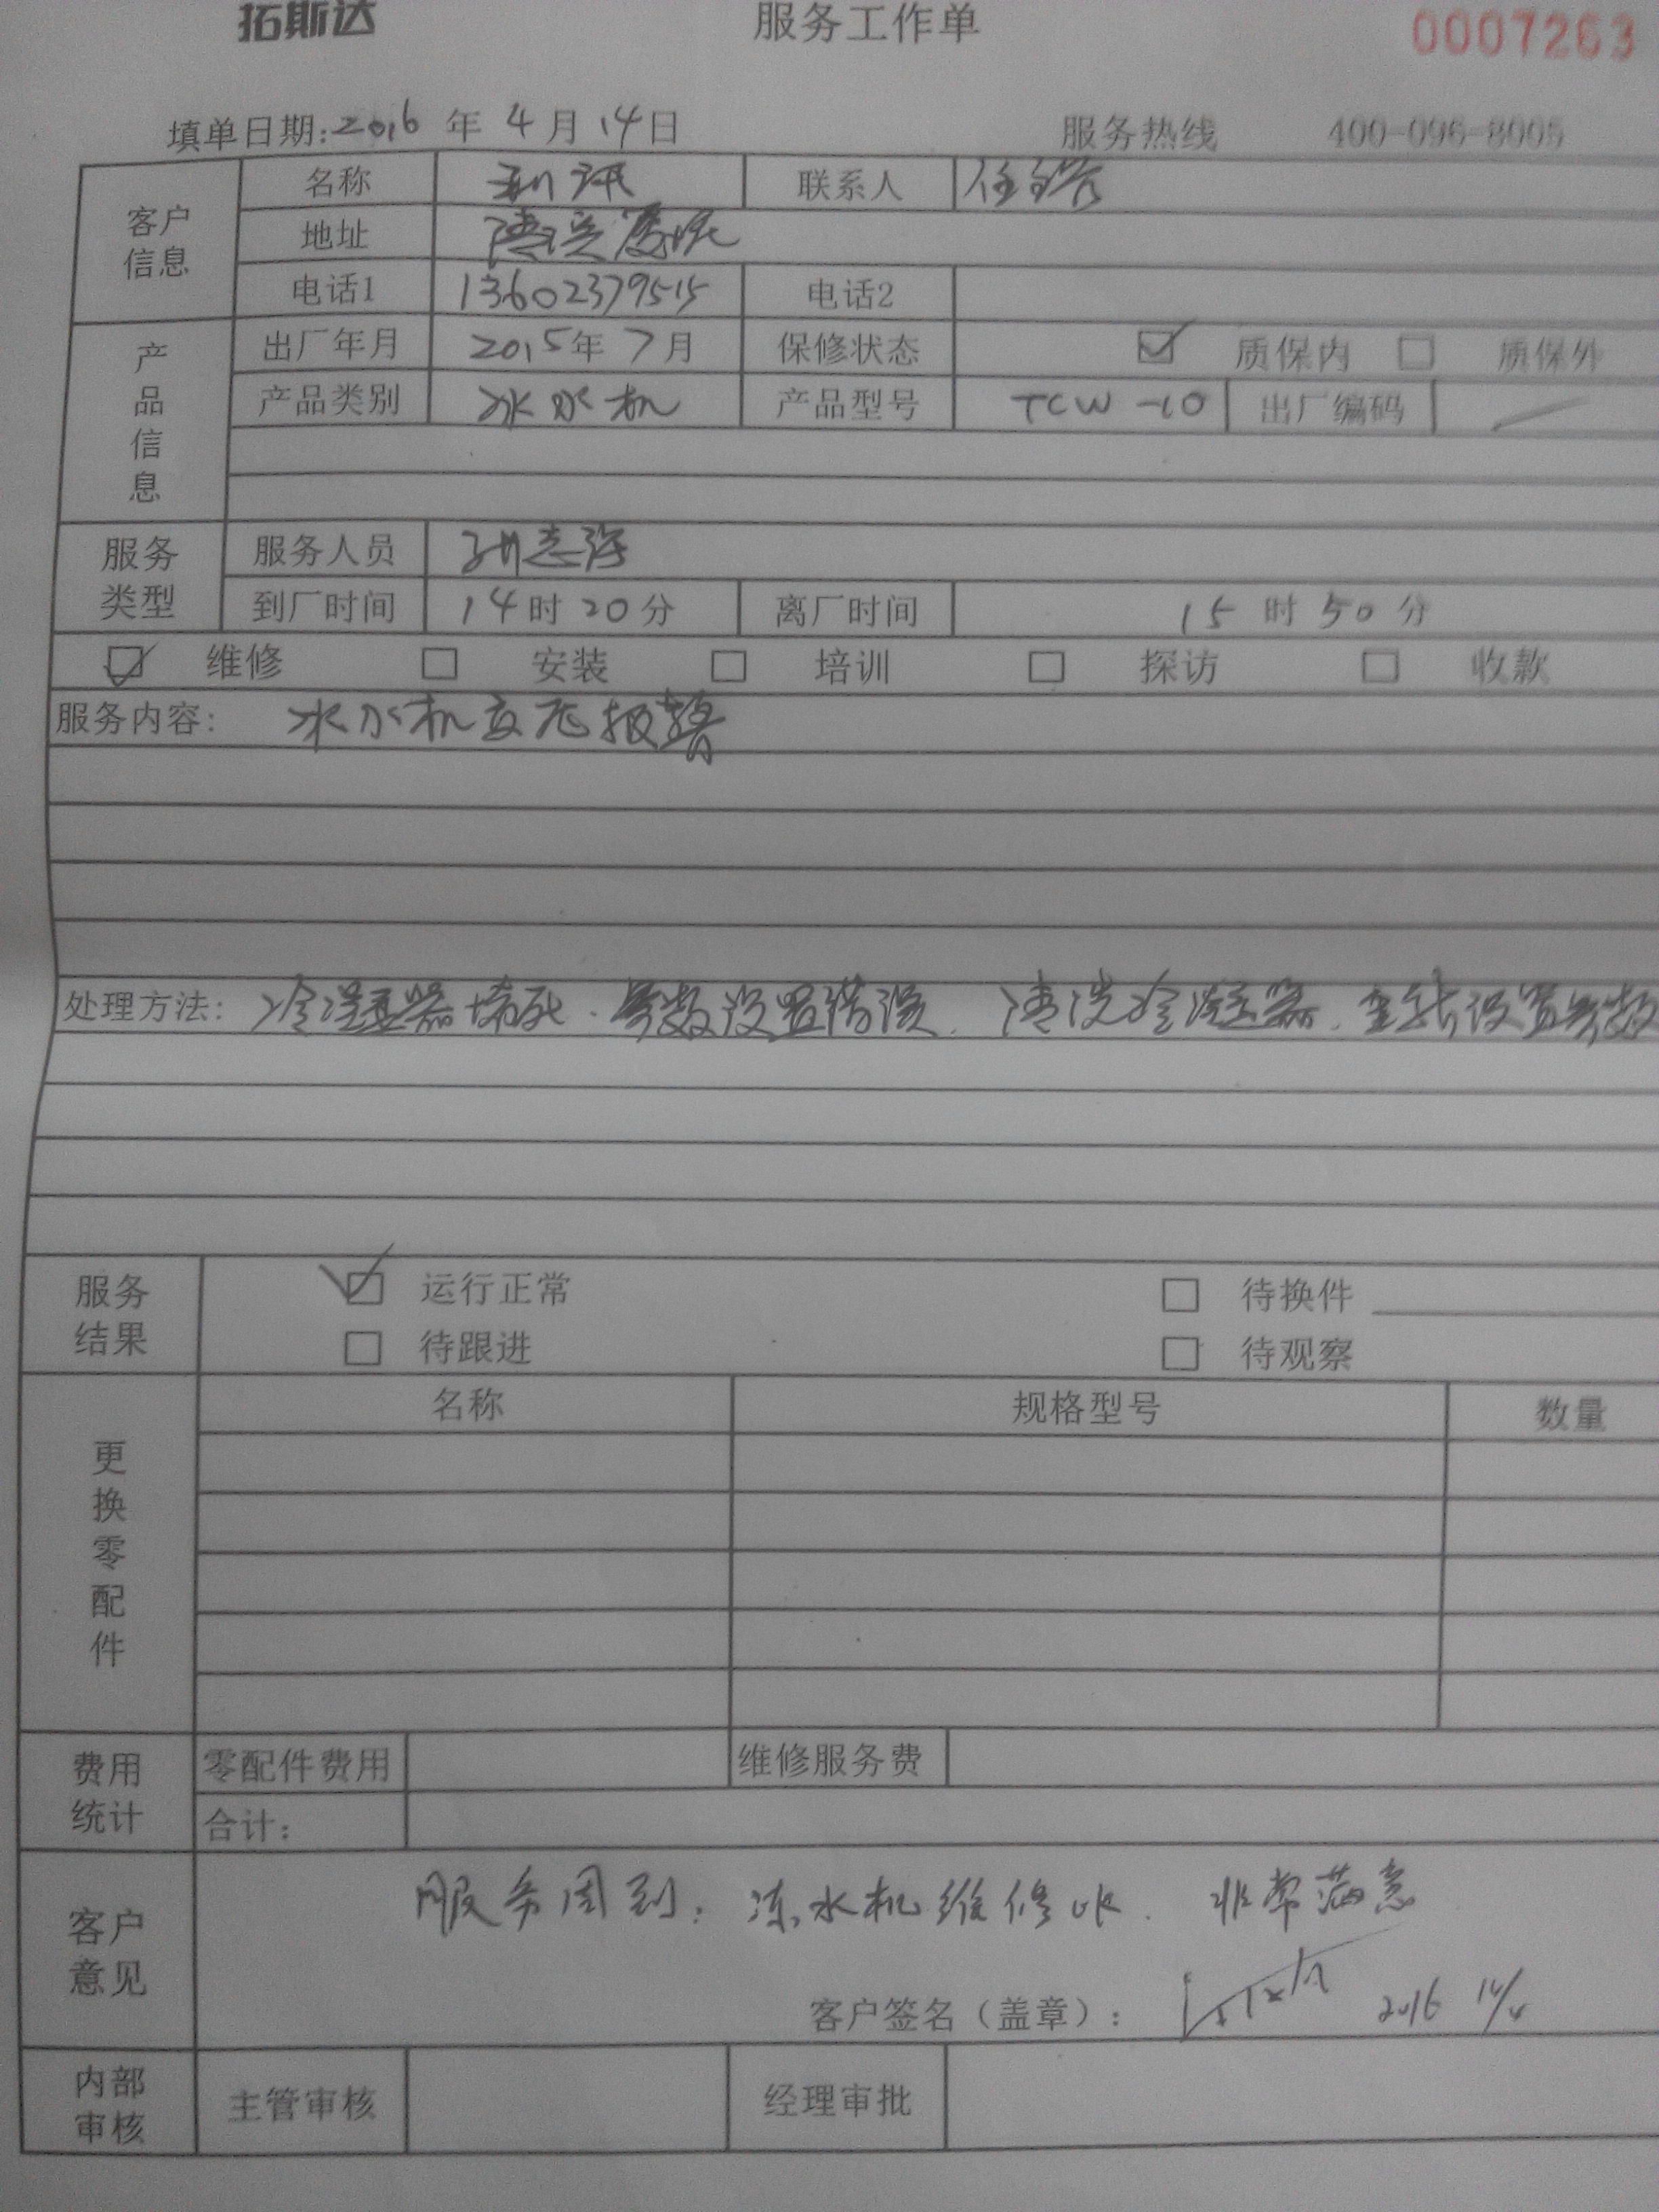 拓斯达 服务工作单 0007263
填单日期:2016年4月14日 服务热线 400-096-8005
客户信息
名称 联系人
地址
电话1 13602379515 电话2
产品信息
出厂年月 2015年7月 保修状态 ☑ 质保内 □ 质保外
产品类别 冰水机 产品型号 TCW-10 出厂编码 /
服务类型
服务人员 孙志强
到厂时间 14时20分 离厂时间 15时50分
☑ 维修 □ 安装 □ 培训 □ 探访 □ 收款
服务内容: 冰水机 报警
处理方法: 冷凝器堵死.参数设置错误.清洗冷凝器.重新设置参数
服务结果
☑ 运行正常 □ 待换件
□ 待跟进 □ 待观察
更换零配件
名称 规格型号 数量
费用统计
零配件费用 维修服务费
合计:
客户意见
服务周到; 冻水机维修OK. 非常满意
客户签名(盖章): 2016 14/4
内部审核
主管审核 经理审批